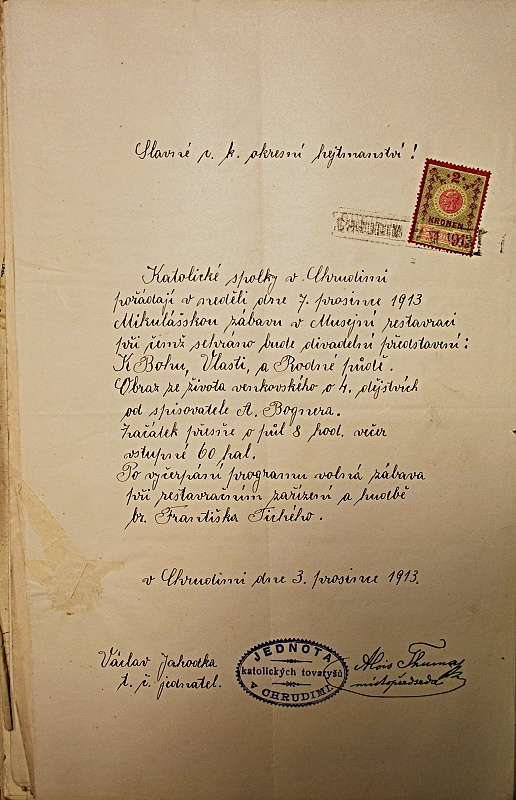 Slavné c. k. okresní hejtmanství!
2
KRONEN
CHRUDIM
1913
Katolické spolky v Chrudimi
pořádají v neděli dne 7. prosince 1913
Mikulášskou zábavu v Musejní restauraci
při čemž sehráno bude divadelní představení:
K Bohu, Vlasti, a Rodné půdě.
Obraz ze života venkovského o 4. dějstvích
od spisovatele A. Bognera.
Začátek přesně o půl 8 hod. večer
vstupné 60 hal.
Po vyčerpání programu volná zábava
při restauračním zařízení a hudbě
br. Františka Tichého.
v Chrudimi dne 3. prosince 1913.
Václav Jahodka
t. č. jednatel.
JEDNOTA
katolických tovaryšů
v CHRUDIMI.
Alois Thuma
místopředseda